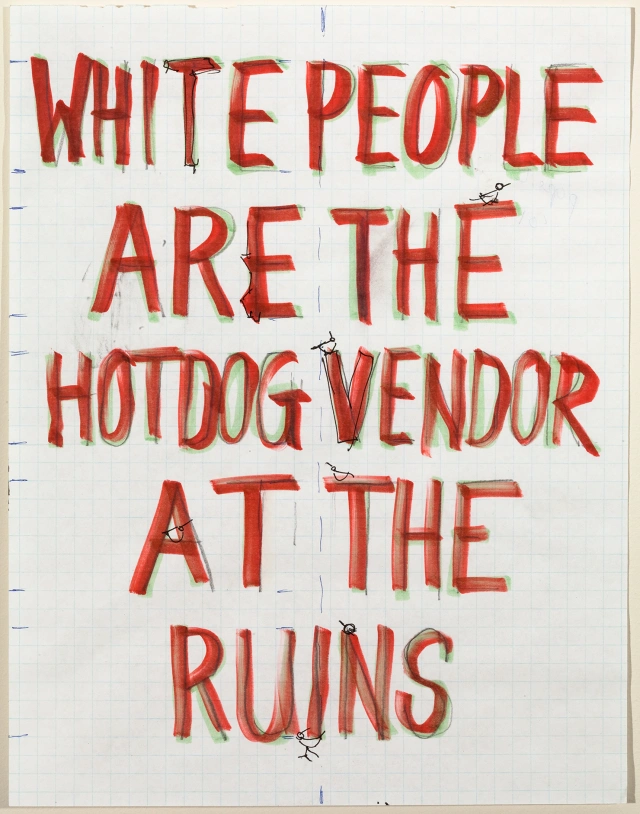 WHITE PEOPLE
ARE THE
HOTDOG VENDOR
AT THE
RUINS